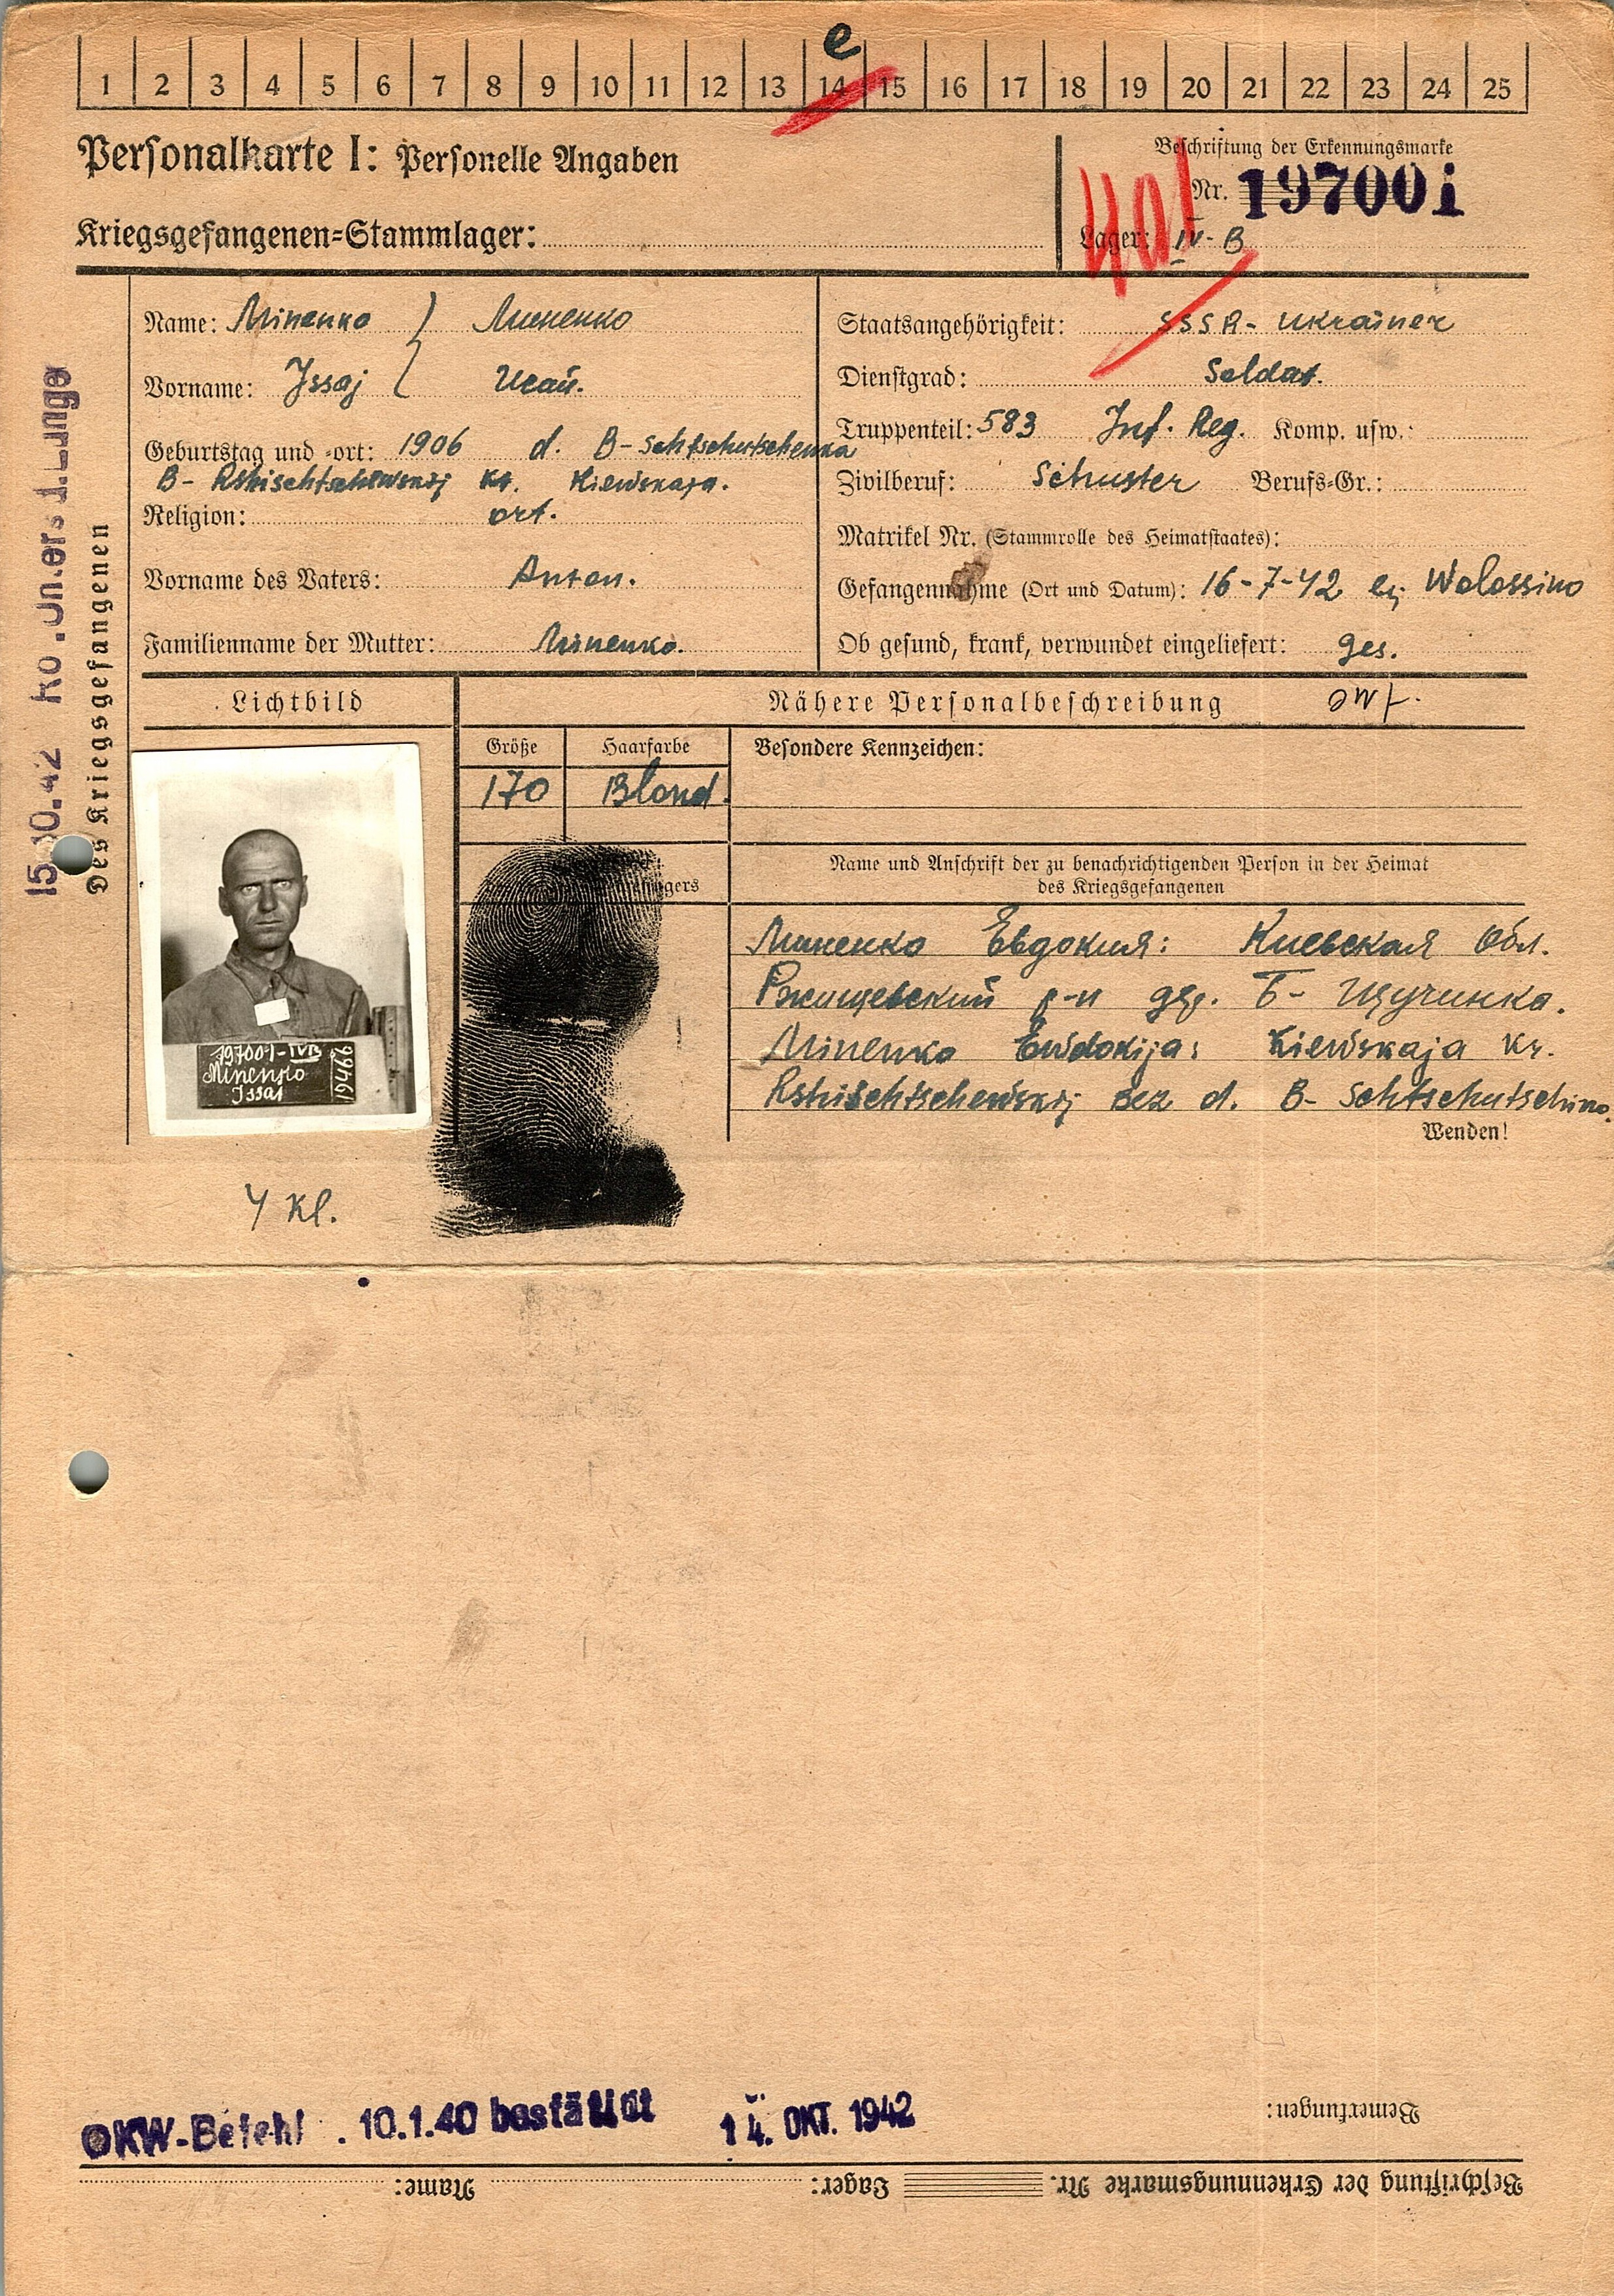 e
1 2 3 4 5 6 7 8 9 10 11 12 13 14 15 16 17 18 19 20 21 22 23 24 25
Personalkarte I: Personelle Angaben
Kriegsgefangenen=Stammlager:
Beschriftung der Erkennungsmarke
Nr. 197001
Lager: IV-B
401
Name: Minenko Миненко
Vorname: Jssaj Исай.
Geburtstag und -ort: 1906 d. B-Schtschutschenka
B- Rshischtschewskij Kr. Kiewskaja.
Religion: ort.
Vorname des Vaters: Anton.
Familienname der Mutter: Minenko.
Staatsangehörigkeit: SSSR- Ukrainer
Dienstgrad: Soldat.
Truppenteil: 583 Inf. Reg. Komp. usw.:
Zivilberuf: Schuster Berufs=Gr.:
Matrikel Nr. (Stammrolle des Heimatstaates):
Gefangennahme (Ort und Datum): 16-7-42 Wolossino
Ob gesund, krank, verwundet eingeliefert: ges.
15.10.42
Des Kriegsgefangenen
Lichtbild
Nähere Personalbeschreibung
Größe Haarfarbe Besondere Kennzeichen:
170 Blond.
197001-IVB
Minenko
Issai
19466
Name und Anschrift der zu benachrichtigenden Person in der Heimat
des Kriegsgefangenen
Миненко Евдокия: Киевская обл.
Ржищевский р-н дер. Б- Щучинка.
Minenko Ewdokija: Kiewskaja Kr.
Rshischtschewskij Bez d. B- Schtschutschinka.
Wenden!
4 Kl.
OKW-Befehl . 10.1.40 bestätigt 14. OKT. 1942
Bemerkungen:
Beschriftung der Erkennungsmarke Nr. Lager: Name: